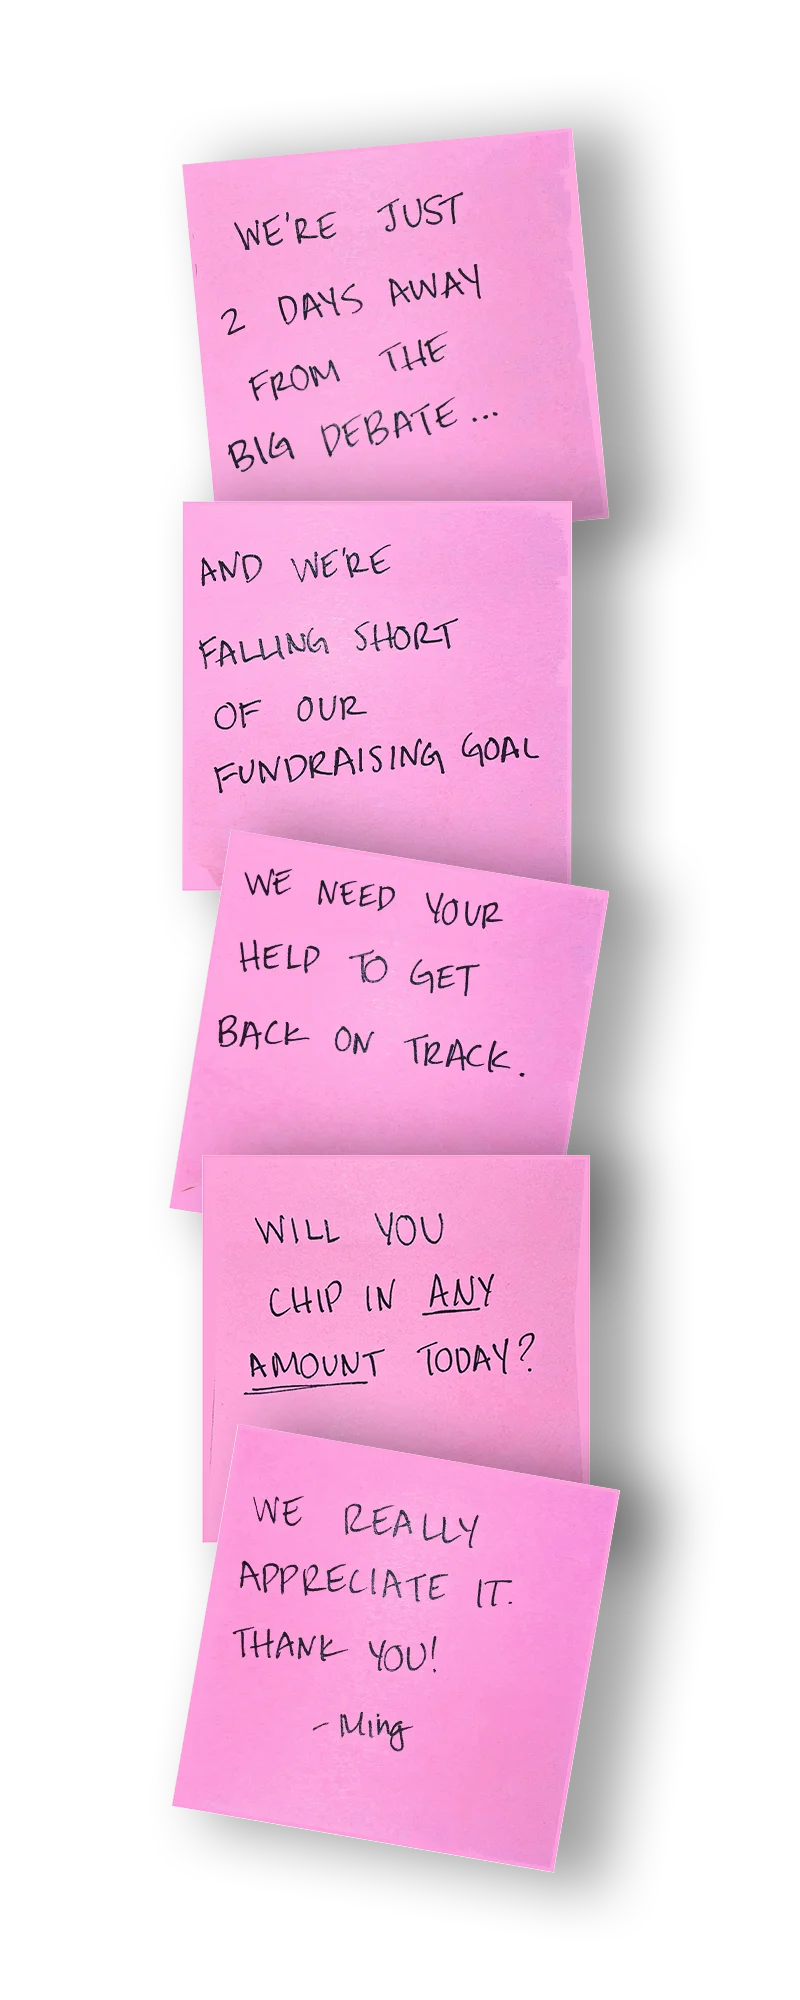 WE'RE JUST
2 DAYS AWAY
FROM THE
BIG DEBATE...
AND WE'RE
FALLING SHORT
OF OUR
FUNDRAISING GOAL
WE NEED YOUR
HELP TO GET
BACK ON TRACK.
WILL YOU
CHIP IN ANY
AMOUNT TODAY?
WE REALLY
APPRECIATE IT.
THANK YOU!
- Ming